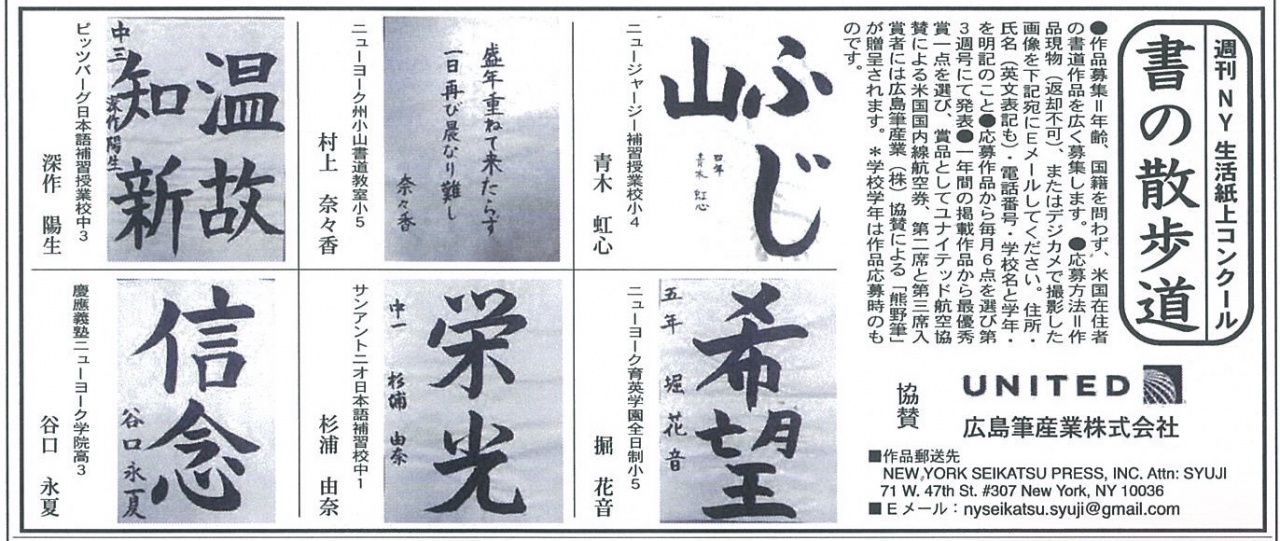 週刊 NY 生活紙上コンクール
書の散歩道
●作品募集＝年齢、国籍を問わず、米国在住者
の書道作品を広く募集します。●応募方法＝作
品現物（返却不可）、またはデジカメで撮影した
画像を下記宛にEメールしてください。住所・
氏名（英文表記も）・電話番号・学校名と学年・
を明記のこと●応募作品から毎月6点を選び第
3週号にて発表●一年間の掲載作品から最優秀
賞一点を選び、賞品としてユナイテッド航空協
賛による米国国内線航空券、第二席と第三席入
賞者には広島筆産業（株）協賛による「熊野筆」
が贈呈されます。＊学校学年は作品応募時のも
のです。
協賛
UNITED
広島筆産業株式会社
■作品郵送先
NEW YORK SEIKATSU PRESS, INC. Attn: SYUJI
71 W. 47th St. #307 New York, NY 10036
■Eメール：nyseikatsu.syuji@gmail.com
ふじ
山
四年
青木 虹心
ニュージャージー補習授業校小4
青木 虹心
盛年重ねて来たらず
一日再び晨なり難し
奈々香
ニューヨーク州小山書道教室小5
村上 奈々香
温故
知新
中三
深作陽生
ピッツバーグ日本語補習授業校中3
深作 陽生
希望
五年 堀 花音
ニューヨーク育英学園全日制小5
掘 花音
栄光
中一 杉浦 由奈
サンアントニオ日本語補習校中1
杉浦 由奈
信念
谷口永夏
慶應義塾ニューヨーク学院高3
谷口 永夏